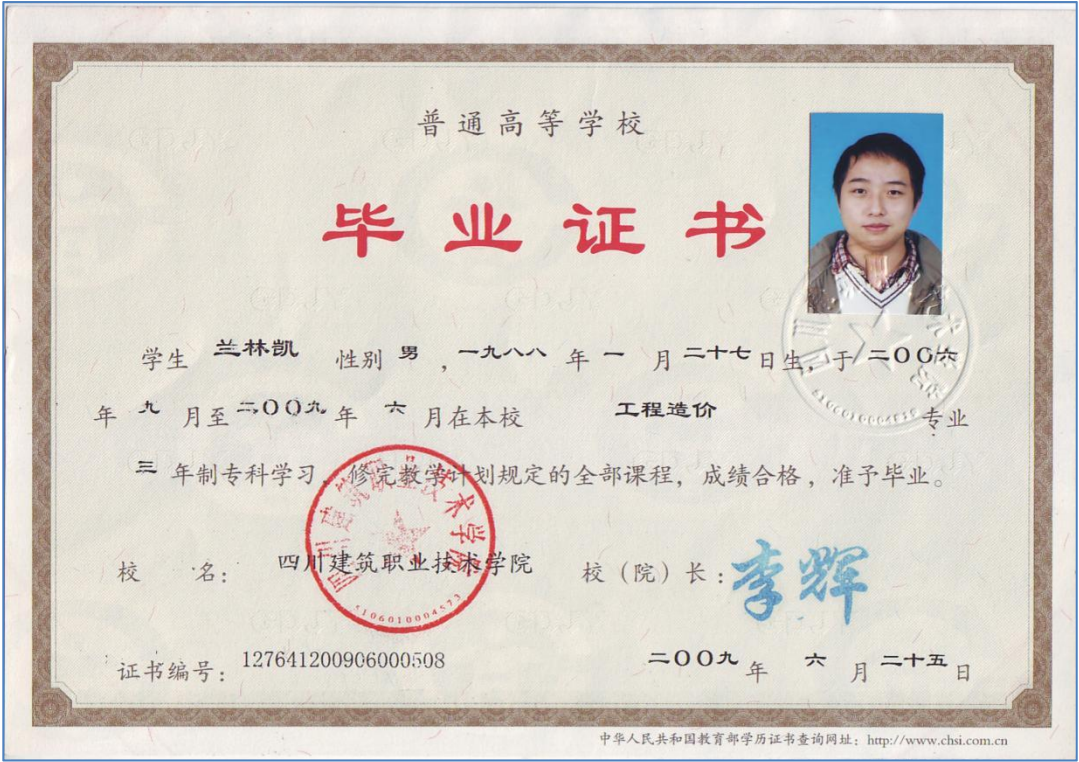 普通高等学校
毕业证书
学生 兰林凯 性别 男 ，一九八八 年 一 月 二十七 日生，于 二〇〇六
年 九 月至 二〇〇九 年 六 月在本校 工程造价 专业
三 年制专科学习，修完教学计划规定的全部课程，成绩合格，准予毕业。
四川建筑职业技术学院
5106010004573
校 名： 四川建筑职业技术学院 校（院）长：李辉
证书编号：127641200906000508 二〇〇九 年 六 月 二十五 日
中华人民共和国教育部学历证书查询网址：http://www.chsi.com.cn